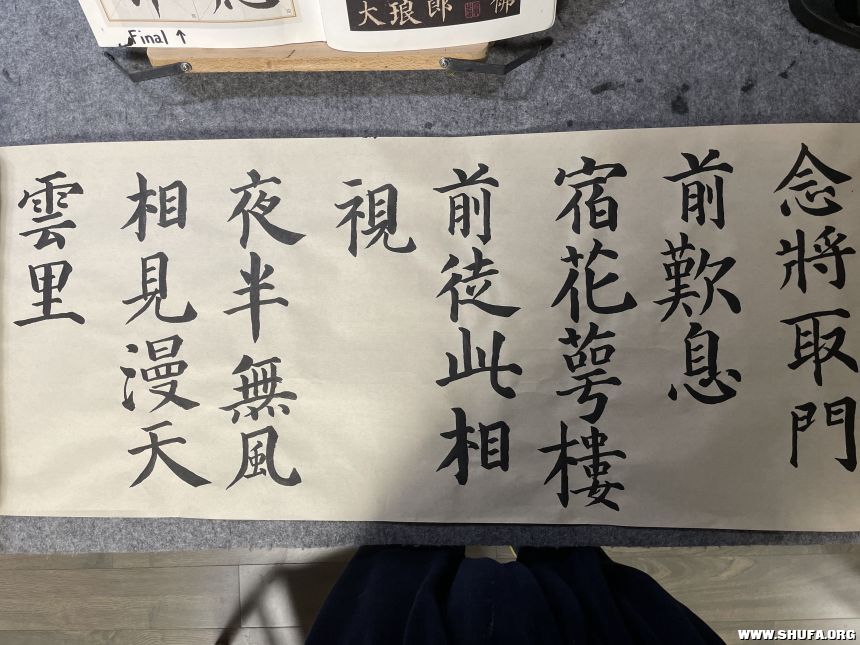 Final ↑
大琅郎
佛
念將取門
前歎息
宿花萼樓
前徒此相
視
夜半無風
相見漫天
雲里
WWW.SHUFA.ORG